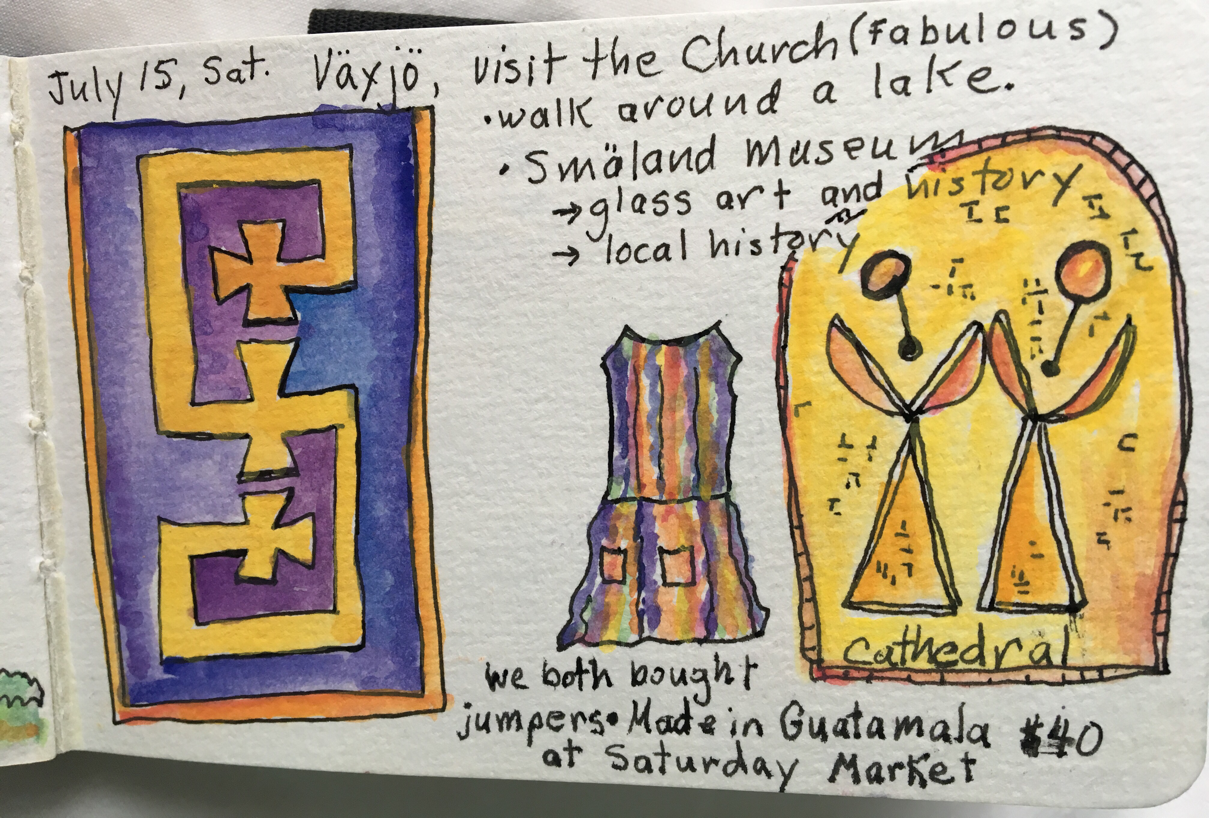 July 15, Sat. Växjö, visit the Church (fabulous)
• walk around a lake.
• Småland museum
→ glass art and history
→ local history
cathedral
we both bought
jumpers • Made in Guatamala $40
at Saturday Market